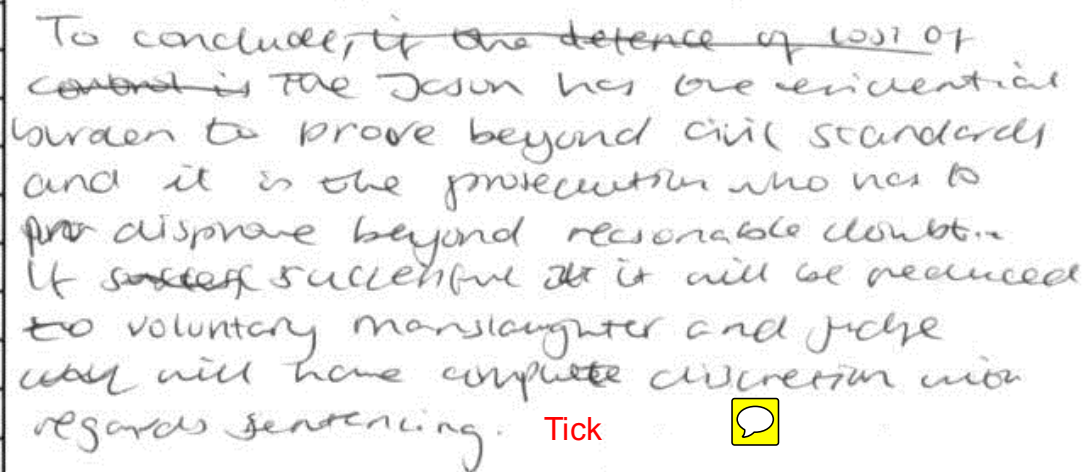 To conclude, if the defence of lost of
control is The Jason has the evidential
burden to prove beyond civil standards
and it is the prosecution who has to
pro disprove beyond reasonable doubt..
If success successful it will be reduced
to voluntary manslaughter and judge
will have complete discretion with
regards sentencing. Tick